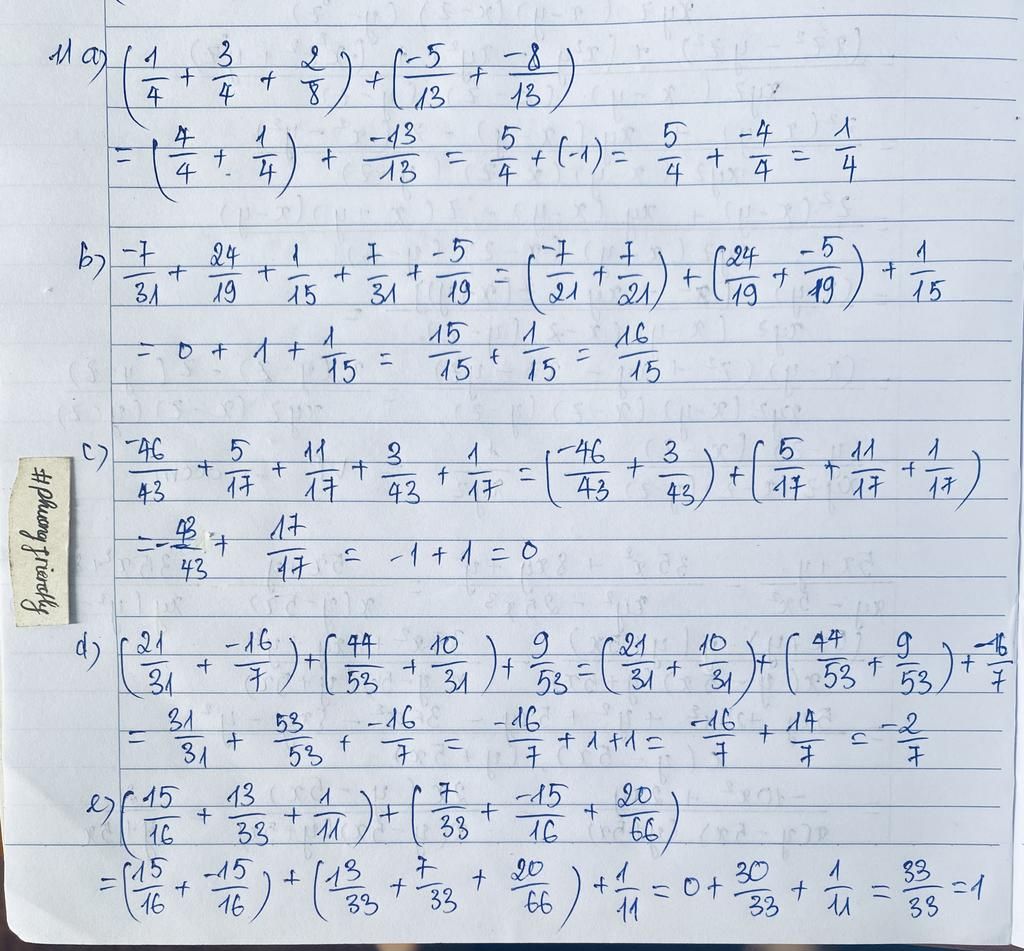 11 a) (1/4 + 3/4 + 2/8) + (-5/13 + -8/13)
= (4/4 + 1/4) + -13/13 = 5/4 + (-1) = 5/4 + -4/4 = 1/4
b) -7/31 + 24/19 + 1/15 + 7/31 + -5/19 = (-7/21 + 7/21) + (24/19 + -5/19) + 1/15
= 0 + 1 + 1/15 = 15/15 + 1/15 = 16/15
c) -46/43 + 5/17 + 11/17 + 3/43 + 1/17 = (-46/43 + 3/43) + (5/17 + 11/17 + 1/17)
= -43/43 + 17/17 = -1 + 1 = 0
#phuongfriendly
d) (21/31 + -16/7) + (44/53 + 10/31) + 9/53 = (21/31 + 10/31) + (44/53 + 9/53) + -16/7
= 31/31 + 53/53 + -16/7 = -16/7 + 1 + 1 = -16/7 + 14/7 = -2/7
e) (15/16 + 13/33 + 1/11) + (7/33 + -15/16 + 20/66)
= (15/16 + -15/16) + (13/33 + 7/33 + 20/66) + 1/11 = 0 + 30/33 + 1/11 = 33/33 = 1